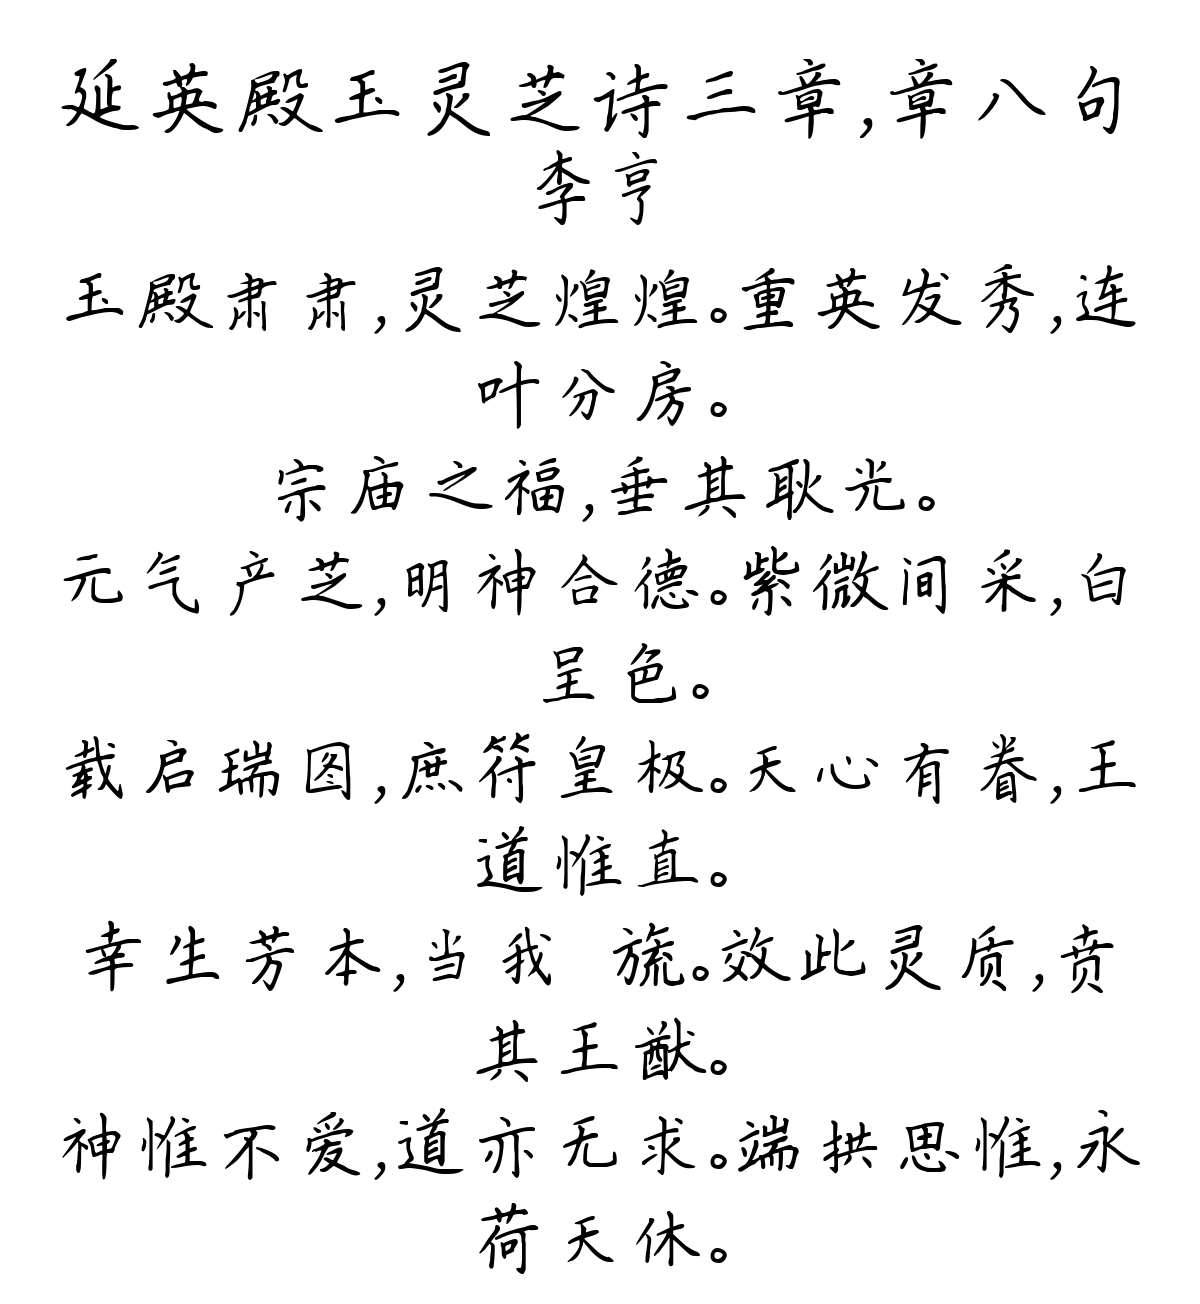 延英殿玉灵芝诗三章,章八句
李亨
玉殿肃肃,灵芝煌煌。重英发秀,连
叶分房。
宗庙之福,垂其耿光。
元气产芝,明神合德。紫微间采,白
呈色。
载启瑞图,庶符皇极。天心有眷,王
道惟直。
幸生芳本,当我 旒。效此灵质,贲
其王猷。
神惟不爱,道亦无求。端拱思惟,永
荷天休。